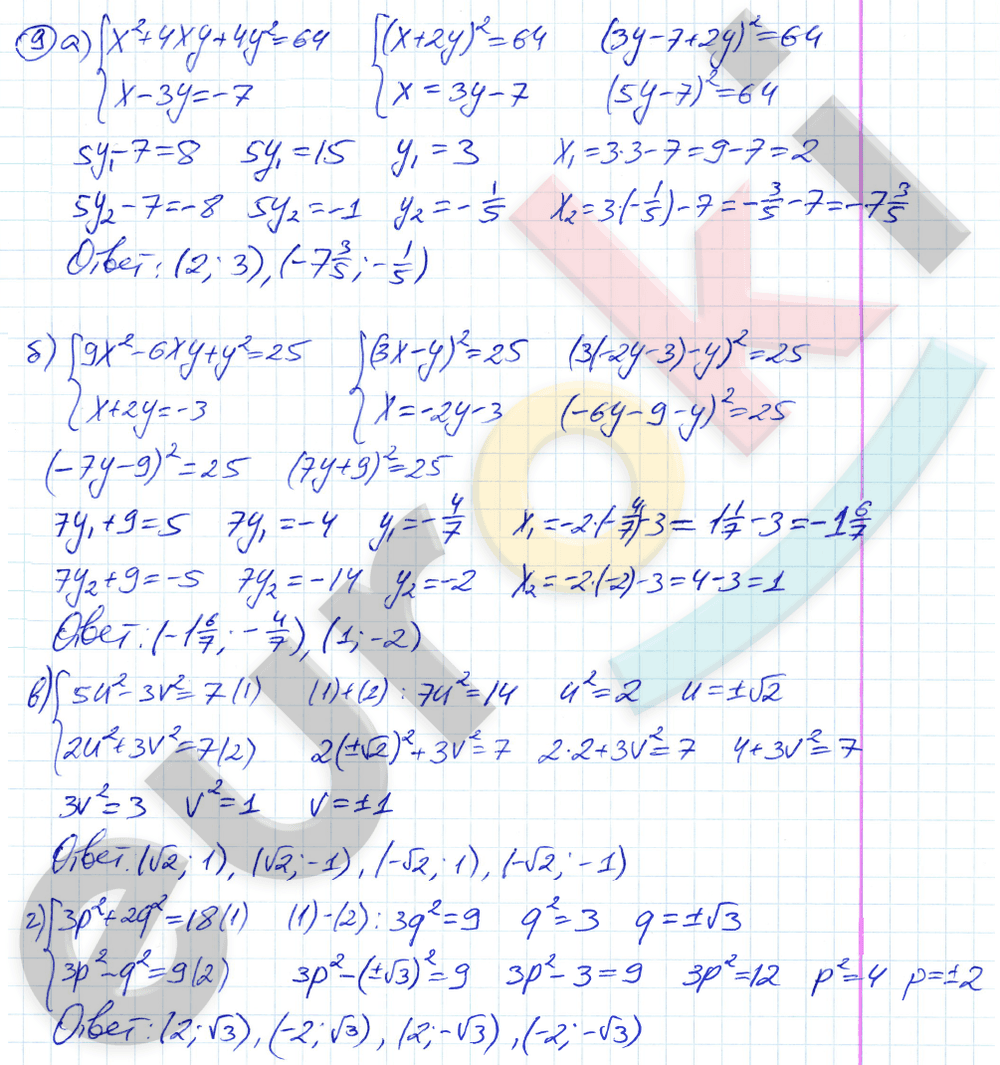 9 а) { x²+4xy+4y²=64    { (x+2y)²=64    (3y-7+2y)²=64
x-3y=-7    x=3y-7    (5y-7)²=64
5y₁-7=8    5y₁=15    y₁=3    x₁=3·3-7=9-7=2
5y₂-7=-8    5y₂=-1    y₂=-1/5    x₂=3(-1/5)-7=-3/5-7=-7 3/5
Ответ: (2; 3), (-7 3/5; -1/5)
б) { 9x²-6xy+y²=25    { (3x-y)²=25    (3(-2y-3)-y)²=25
x+2y=-3    x=-2y-3    (-6y-9-y)²=25
(-7y-9)²=25    (7y+9)²=25
7y₁+9=5    7y₁=-4    y₁=-4/7    x₁=-2·(-4/7)-3=1 1/7-3=-1 6/7
7y₂+9=-5    7y₂=-14    y₂=-2    x₂=-2·(-2)-3=4-3=1
Ответ: (-1 6/7; -4/7), (1; -2)
в) { 5u²-3v²=7 (1)    (1)+(2): 7u²=14    u²=2    u=±√2
2u²+3v²=7 (2)    2(±√2)²+3v²=7    2·2+3v²=7    4+3v²=7
3v²=3    v²=1    v=±1
Ответ: (√2; 1), (√2; -1), (-√2; 1), (-√2; -1)
г) { 3p²+2q²=18 (1)    (1)-(2): 3q²=9    q²=3    q=±√3
3p²-q²=9 (2)    3p²-(±√3)²=9    3p²-3=9    3p²=12    p²=4    p=±2
Ответ: (2; √3), (-2; √3), (2; -√3), (-2; -√3)
euroki